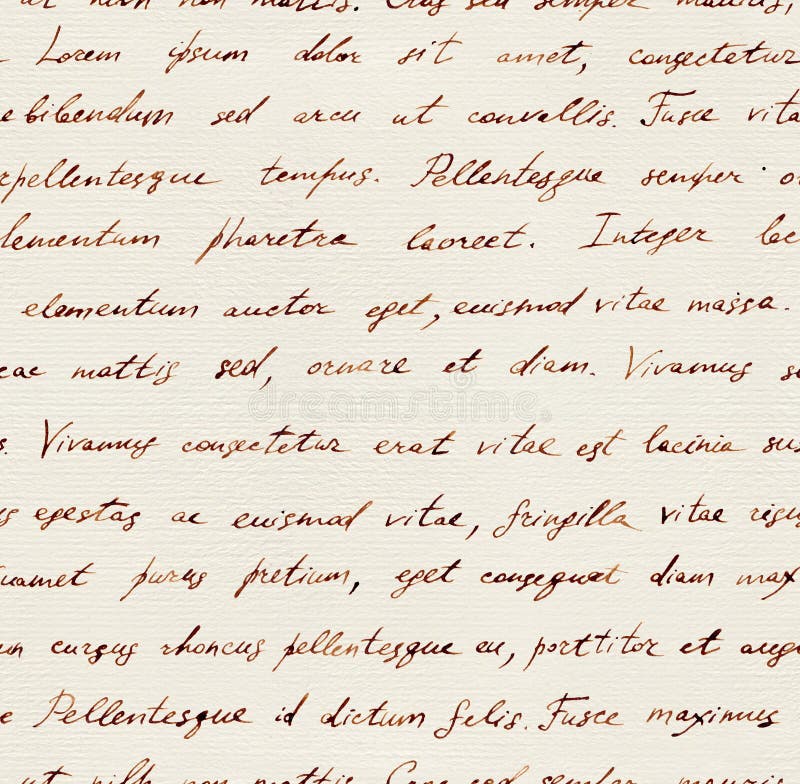 ut nibh non mattis. Cras sed semper mauris,
Lorem ipsum dolor sit amet, consectetur
e bibendum sed arcu ut convallis. Fusce vita
rpellentesque tempus. Pellentesque semper o
lementum pharetra laoreet. Integer lac
elementum auctor eget, euismod vitae massa.
cac mattis sed, ornare et diam. Vivamus s
s. Vivamus consectetur erat vitae est lacinia sus
us egestas ac euismod vitae, fringilla vitae risu
uamet purus pretium, eget consequat diam max
un cursus rhoncus pellentesque eu, porttitor et augu
e Pellentesque id dictum felis. Fusce maximus
ut nibh non mattis. Cras sed semper mauris
dreamstime